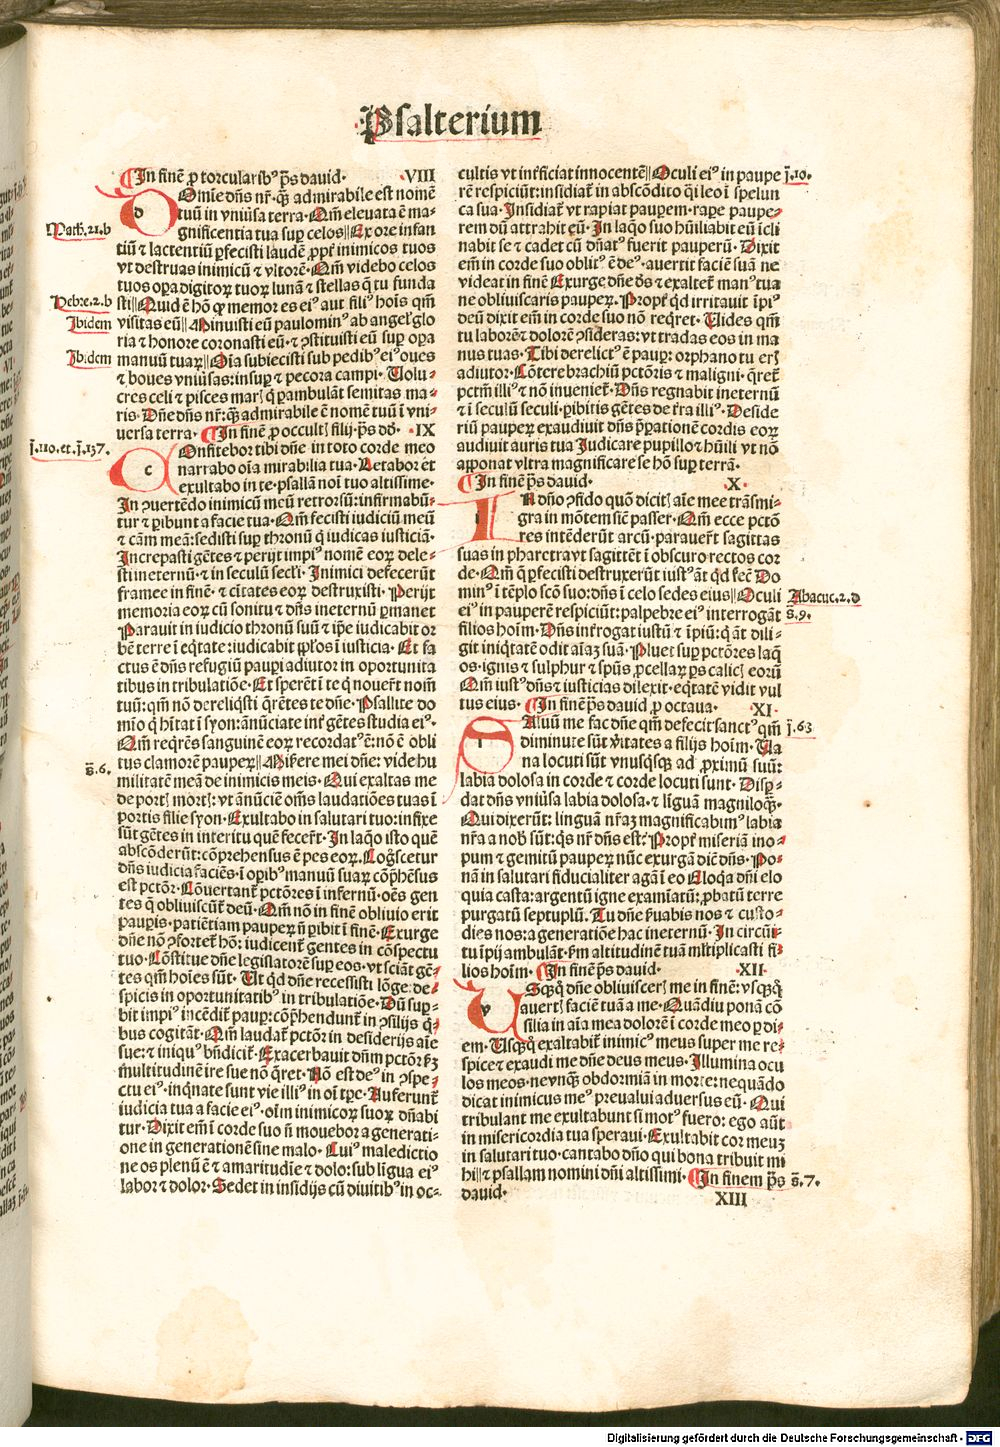 Psalterium
In finē ꝓ torcularibꝰ p̄s dauid· ·VIII
Omīe dn̄s nr̄· q̄ꝫ admirabile est nomē
tuū in vniūsa terra· Qm̄ eleuata ē ma-
gnificentia tua suꝑ celos‖ Ex ore infan
tiū ⁊ lactentiū ꝑfecisti laudē ꝓpt̄ inimicos tuos
vt destruas inimicū ⁊ vltorē· Qm̄ videbo celos
tuos oꝑa digitoꝝ tuoꝝ lunā ⁊ stellas q̄ tu funda
sti‖ Quid ē hō qꝫ memor es eiꝰ aut filiꝰ hoīs qm̄
visitas eū‖ Minuisti eū paulominꝰ ab angeꝉ glo
ria ⁊ honore coronasti eū· ⁊ ꝯstituisti eū suꝑ oꝑa
manuū tuaꝝ‖ Oīa subiecisti sub pedibꝰ eiꝰ oues
⁊ boues vniūsas: insuꝑ ⁊ pecora campi· Uolu-
cres celi ⁊ pisces marꝭ q̄ ꝑambulāt semitas ma-
ris· Dn̄e dn̄s nr̄: q̄ꝫ admirabile ē nomē tuū ī vni-
uersa terra· In finē ꝓ occultꝭ filij· p̄s dd̄· ·IX
Onfitebor tibi dn̄e in toto corde meo
narrabo oīa mirabilia tua· Letabor et
exultabo in te· psallā noī tuo altissime·
In ꝯuertēdo inimicū meū retrorsū: infirmabū-
tur ⁊ ꝑibunt a facie tua· Qm̄ fecisti iudiciū meū
⁊ cām meā: sedisti suꝑ thronū q̄ iudicas iusticiā·
Increpasti gētes ⁊ perijt impiꝰ nomē eoꝝ dele-
sti ineternū· ⁊ in seculū secƚi· Inimici defecerūt
framee in finē· ⁊ ciuitates eoꝝ destruxisti· Perijt
memoria eoꝝ cū sonitu ⁊ dn̄s ineternū ꝑmanet
Parauit in iudicio thronū suū ⁊ ip̄e iudicabit or
bē terre ī eq̄tate: iudicabit pp̄los ī iusticia· Et fa
ctus ē dn̄s refugiū pauꝑi adiutor in oportunita
tibus in tribulatiōe· Et sperēt ī te q̄ nouer̄t nom̄
tuū: qm̄ nō dereliq̄sti q̄rētes te dn̄e· Psallite do
mīo q̄ hītat ī syon: ānūciate int̄ gētes studia eiꝰ·
Qm̄ req̄rēs sanguinē eoꝝ recordatꝰ ē: nō ē obli
tus clamorē pauꝑeꝝ‖ Misere mei dn̄e: vide hu
militatē meā de inimicis meis· Qui exaltas me
de portꝭ mortꝭ: vt ānūciē om̄s laudatiōes tuas ī
portis filie syon· Exultabo in salutari tuo: infixe
sūt gētes in interitu quē fecer̄t· In laq̄o isto quē
abscōderūt: cōprehensus ē pes eoꝝ· Cogn̄scetur
dn̄s iudicia faciēs· ī oꝑibꝰ manuū suaꝝ cōp̄hēsus
est pctōr· Cōuertant̄ pctōres ī infernū· oēs gen
tes q̄ obliuiscūt̄ deū· Qm̄ nō in finē obliuio erit
pauꝑis· patiētiam pauꝑeꝝ n̄ ꝑibit ī finē· Exurge
dn̄e nō ꝯfortet̄ hō: iudicent̄ gentes in cōspectu
tuo· Cōstitue dn̄e legislatorē suꝑ eos· vt sciāt gē-
tes qm̄ hoīes sūt· Ut qd̄ dn̄e recessisti lōge· de-
spicis in oportunitatibꝰ in tribulatiōe· Dū suꝑ-
bit impiꝰ incēdit̄ pauꝑ: cōp̄hendunt̄ in ꝯsilijs q̄-
bus cogitāt· Qm̄ laudat̄ pctōr in desiderijs aīe
sue: ⁊ iniquꝰ bn̄dicit̄· Exacerbauit dn̄m pctōr ẜm
multitudinē ire sue nō q̄ret· Nō est deꝰ in ꝯspe-
ctu eiꝰ· inq̄nate sunt vie illiꝰ in oī tꝑe· Auferunt̄
iudicia tua a facie eiꝰ· oīm inimicoꝝ suoꝝ dn̄abi
tur· Dixit em̄ ī corde suo n̄ mouebor a generati-
one in generationē sine malo· Cuiꝰ maledictio
ne os plenū ē ⁊ amaritudīe ⁊ dolo: sub līgua eiꝰ
labor ⁊ dolor· Sedet in insidijs cū diuitibꝰ in oc-
cultis vt int̄ficiat innocentē‖ Oculi eiꝰ in paupe
rē respiciūt: insidiat̄ in abscōdito q̄i leo ī spelun
ca sua· Insidiat̄ vt rapiat pauꝑem· raꝑe paupe-
rem dū attrahit eū· In laq̄o suo hūiliabit eū īcli
nabit se ⁊ cadet cū dn̄atꝰ fuerit pauperū· Dixit
em̄ in corde suo oblitꝰ ē deꝰ· auertit faciē suā ne
videat in finē Exurge dn̄e dꝰs ⁊ exaltet̄ manꝰ tua
ne obliuiscaris pauꝑeꝝ· Propt̄ qd̄ irritauit īpiꝰ
deū dixit em̄ in corde suo nō req̄ret· Uides qm̄
tu laborē ⁊ dolorē ꝯsideras: vt tradas eos in ma
nus tuas· Tibi derelictꝰ ē pauꝑ: orphano tu erꝭ
adiutor· Cōtere brachiū pctōris ⁊ maligni· q̄ret̄
pctm̄ illiꝰ ⁊ nō inueniet̄· Dn̄s regnabit ineternū
⁊ ī seculū seculi· ꝑibitis gētes de tr̄a illiꝰ· Deside
riū pauꝑeꝝ exaudiuit dn̄s p̄ꝑationē cordis eoꝝ
audiuit auris tua Judicare pupillo ⁊ hūili vt nō
apponat vltra magnificare se hō suꝑ terrā·
In finē p̄s dauid· ·X·
N dn̄o ꝯfido quō dicitꝭ aīe mee trāsmi-
gra in mōtem siē passer· Qm̄ ecce pctō
res intēderūt arcū· parauer̄t sagittas
suas in pharetra vt sagittēt ī obscuro rectos cor
de· Qm̄ q̄ ꝑfecisti destruxerūt iustꝰ āt qd̄ fec̄ Do
minꝰ ī tēplo scō suo: dn̄s ī celo sedes eius‖ Oculi
eiꝰ in pauperē respiciūt: palpebre eiꝰ interrogāt
filios hoīm· Dn̄s int̄rogat iustū ⁊ īpiū: q̄ āt dili-
git iniq̄tatē odit aīaꝫ suā· Pluet suꝑ pctōres laq̄
os· ignis ⁊ sulphur ⁊ spūs ꝓcellaꝝ ps calicꝭ eorū
Qm̄ iustꝰ dn̄s ⁊ iusticias dilexit· eq̄tatē vidit vul
tus eius· In finē p̄s dauid ꝓ octaua· ·XI·
Aluū me fac dn̄e qm̄ defecit sanctꝰ qm̄
diminute sūt v̄itates a filijs hoīm· Ua
na locuti sūt vnusq̄sq̄ꝫ ad ꝓximū suū:
labia dolosa in corde ⁊ corde locuti sunt· Disꝑ-
dat dn̄s vniūsa labia dolosa· ⁊ līguā magniloq̄ꝫ·
Qui dixerūt: linguā nr̄aꝫ magnificabimꝰ labia
nr̄a a nobꝭ sūt: q̄s nr̄ dn̄s est: Propt̄ miseriā ino-
pum ⁊ gemitū pauꝑeꝝ nūc exurgā dīē dn̄s· Po-
nā in salutari fiducialiter agā ī eo Eloq̄a dn̄i elo
quia casta: argentū igne examīatū: ꝓbatū terre
purgatū septuplū· Tu dn̄e ẜuabis nos ⁊ custo-
dies nos: a generatiōe hac ineternū· In circūi-
tu īpij ambulāt· ẜm altitudinē tuā mƚtiplicasti fi-
lios hoīm· In finē p̄s dauid· ·XII·
Sq̄ꝫq̄ dn̄e obliuiscerꝭ me in finē: vsq̄ꝫq̄
auertꝭ faciē tuā a me· Quādiu ponā cō
silia in aīa mea dolorē ī corde meo ꝑ di-
em· Usq̄ꝫq̄ exaltabit̄ inimicꝰ meus super me re-
spice ⁊ exaudi me dn̄e deus meus· Illumina ocu
los meos· ne vnq̄ꝫ obdormiā in morte: nequādo
dicat inimicus meꝰ preualui aduersus eū· Qui
tribulant me exultabunt si motꝰ fuero: ego aūt
in misericordia tua speraui· Exultabit cor meuꝫ
in salutari tuo· cantabo dn̄o qui bona tribuit mi
hi‖ ⁊ psallam nomini dn̄i altissimi· In finem p̄s
dauid· XIII
Math. 21. b
Hebre. 2. b
Ibidem
Ibidem
j. 110. et. j. 137.
s̄. 6.
j. 10.
Abacuc. 2. d
s̄. 9.
j. 63
s̄. 7.
Digitalisierung gefördert durch die Deutsche Forschungsgemeinschaft - DFG